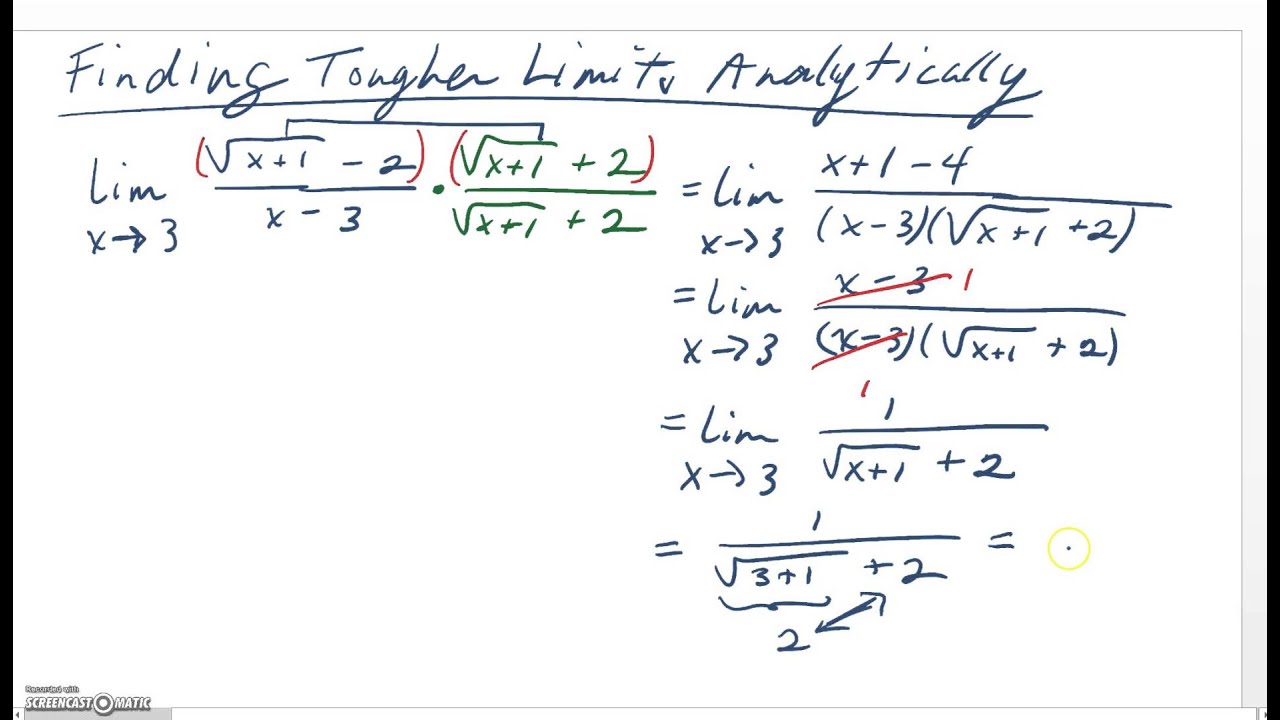 Finding Tougher Limits Analytically
lim x→3 (√(x+1) - 2)/(x - 3) • (√(x+1) + 2)/(√(x+1) + 2) = lim x→3 (x+1-4)/((x-3)(√(x+1) +2))
= lim x→3 (x-3)/((x-3)(√(x+1) + 2)) 1 1
= lim x→3 1/(√(x+1) + 2)
= 1/(√(3+1) + 2) = .
2
Recorded with
SCREENCAST-O-MATIC